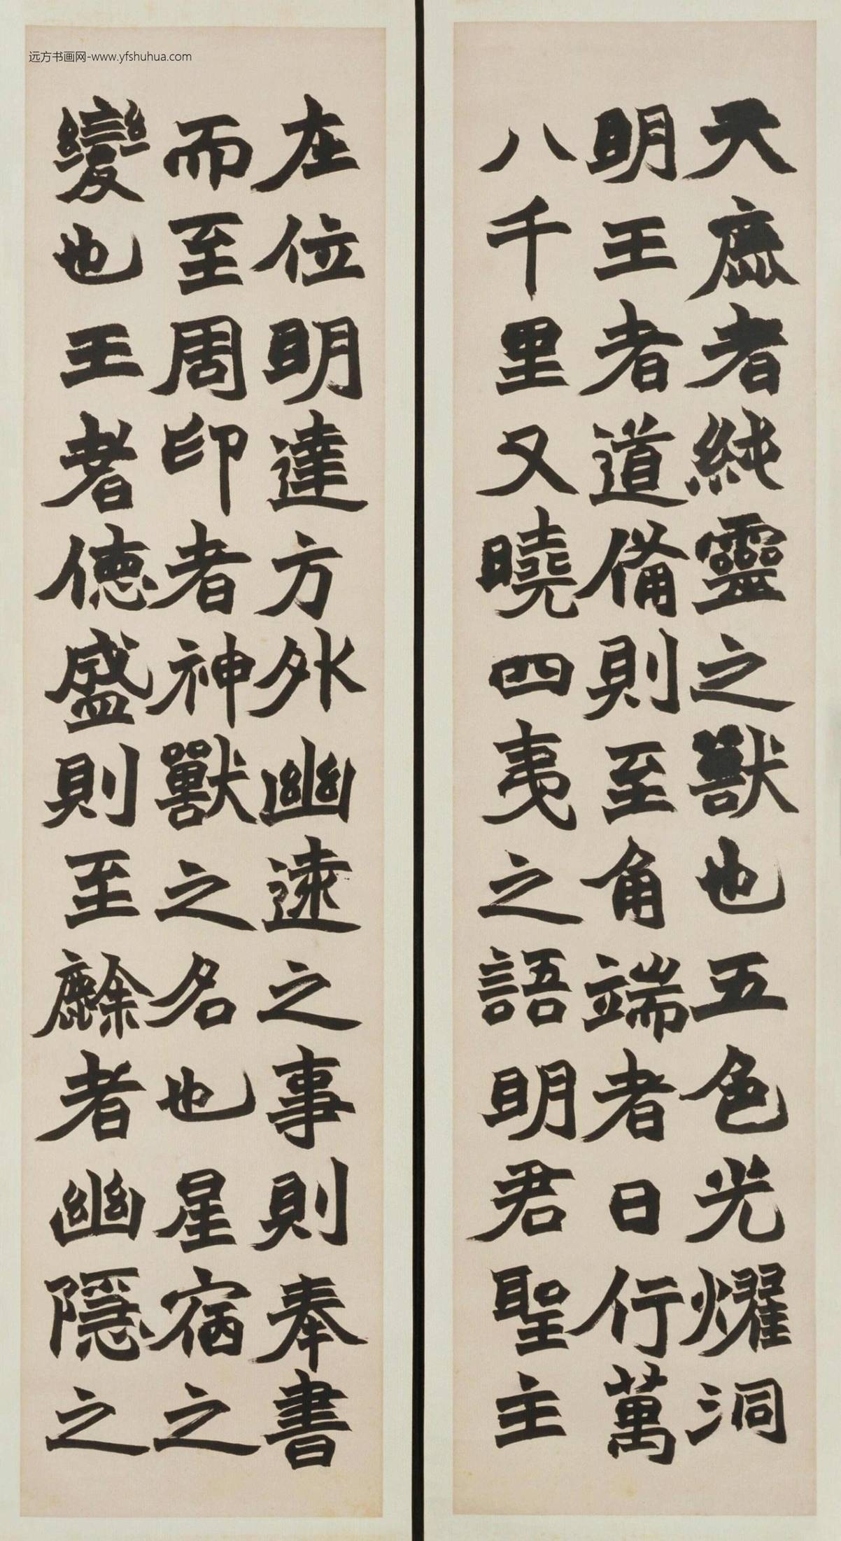 天鹿者純靈之獸也五色光耀洞
明王者道備則至角端者日行萬
八千里又曉四夷之語明君聖主
在位明達方外幽遠之事則奉書
而至周印者神獸之名也星宿之
變也王者德盛則至麒者幽隱之
远方书画网-www.yfshuhua.com